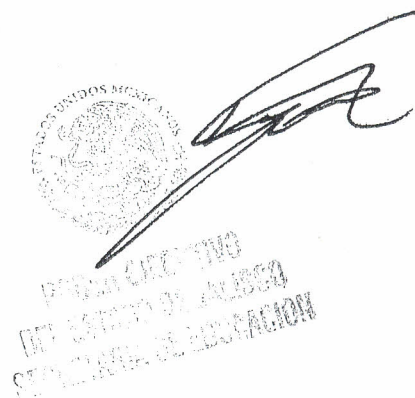 ESTADOS UNIDOS MEXICANOS
PODER EJECUTIVO
DEL ESTADO DE JALISCO
SECRETARIA DE EDUCACION